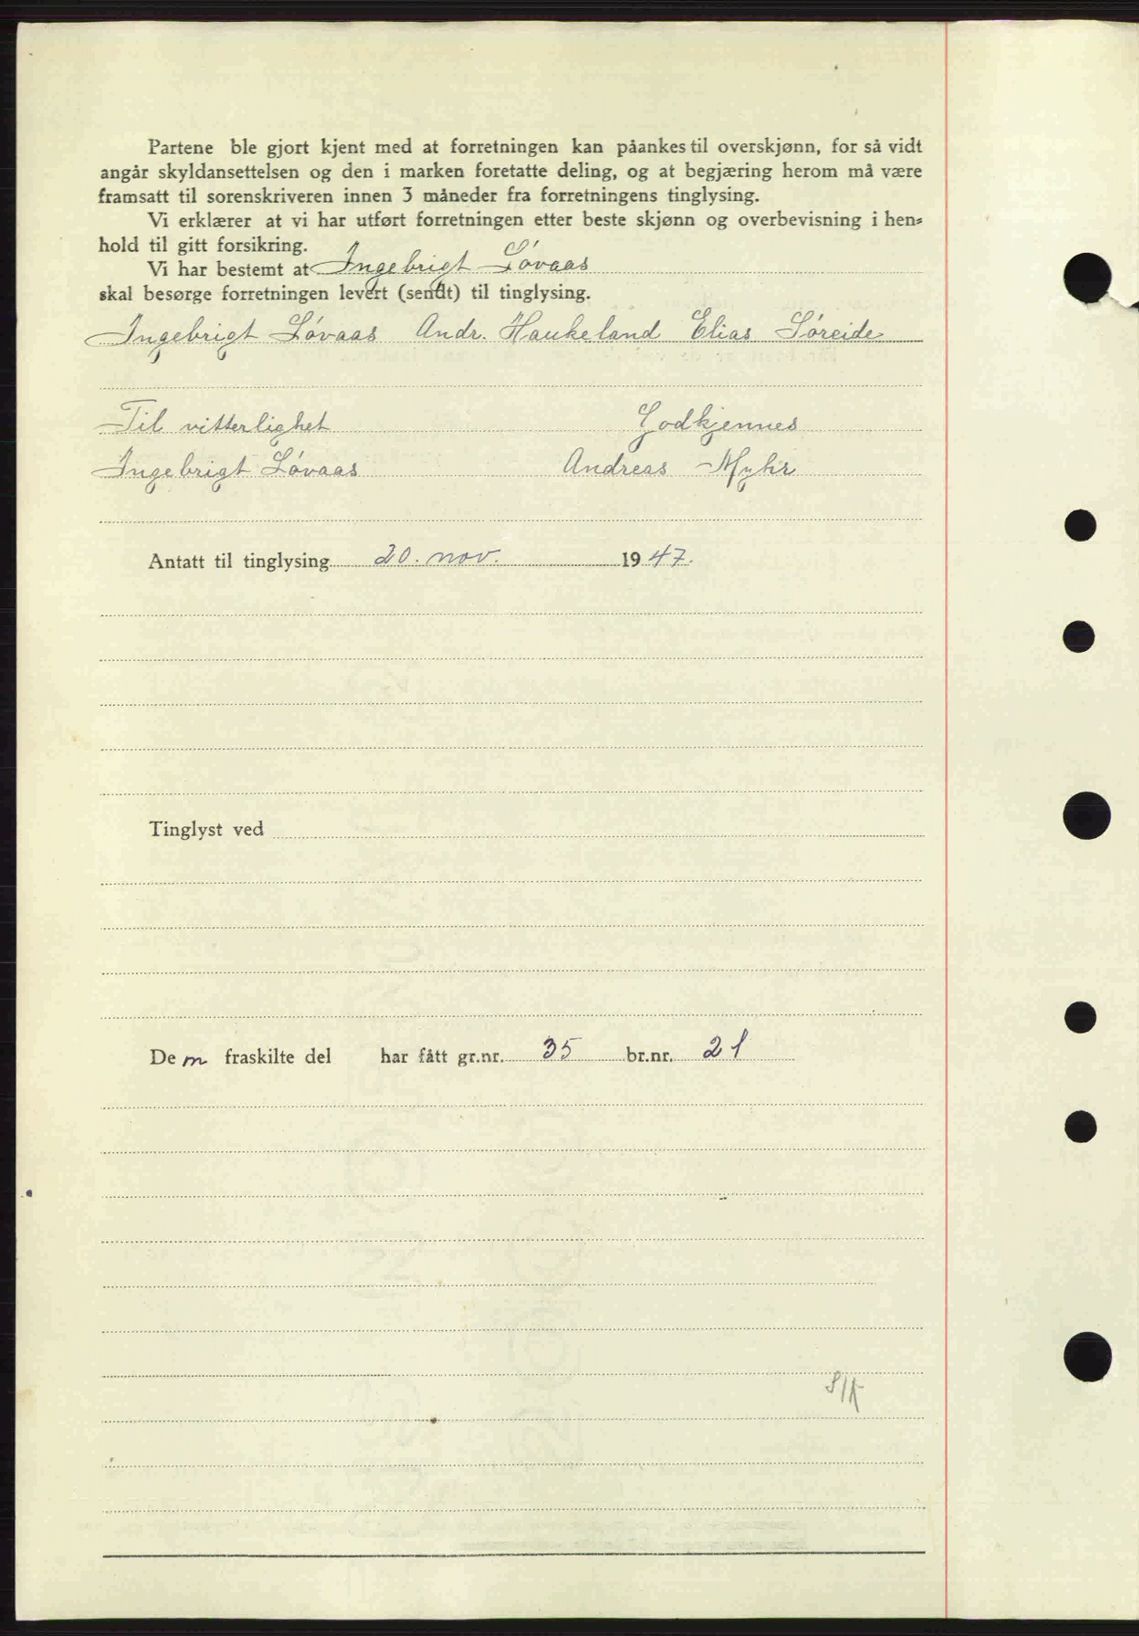 Partene ble gjort kjent med at forretningen kan påankes til overskjønn, for så vidt
angår skyldansettelsen og den i marken foretatte deling, og at begjæring herom må være
framsatt til sorenskriveren innen 3 måneder fra forretningens tinglysing.
Vi erklærer at vi har utført forretningen etter beste skjønn og overbevisning i hen=
hold til gitt forsikring.
Vi har bestemt at Ingebrigt Løvaas
skal besørge forretningen levert (sendt) til tinglysing.
Ingebrigt Løvaas Andr. Haukeland Elias Søreide
Til vitterlighet Godkjennes
Ingebrigt Løvaas Andreas Myhr
Antatt til tinglysing 20. nov. 1947.
Tinglyst ved
Den fraskilte del har fått gr.nr. 35 br.nr. 21